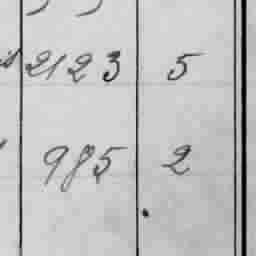 2123 5
985 2